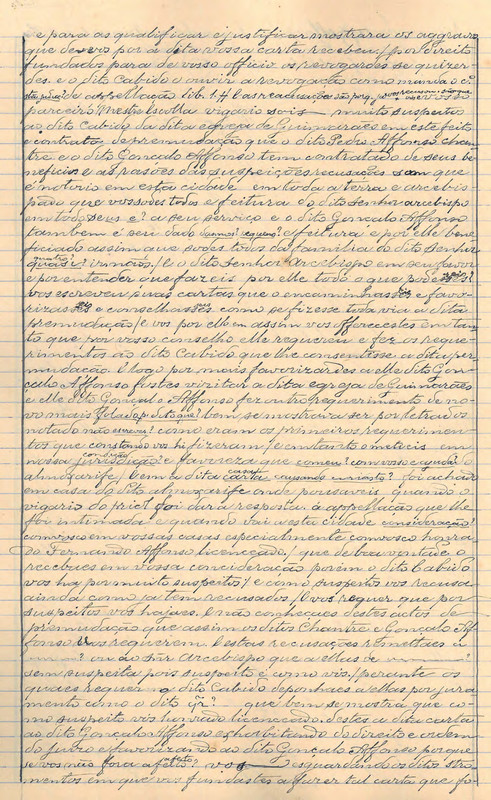 e para as qualificar e justificar mostrara os aggravos
que de vos por a dita vossa carta recebeu / por direito
fundados para de vosso officio os revogardes se quizer
des. e o dito Cabido o ouvir a revogação como manda o
de appellação lib. 1.
parceiro / Mestre Escolla vigario sois muito suspeito
ao dito Cabido da dita egreja de Guimarães em este feito
e contrato de premudação que o dito Pedro Affonso chan
tre e o dito Gonçalo Affonso tem contratado de seus be
neficios e as rasões das suspeições e recusações som que
é notorio em esta cidade em toda a terra e arcebis
pado que vos sodes todo e feitura do dito senhor arcebispo
em todo seus e? a seu serviço e o dito Gonçalo Affonso
tambem é seu dado e feitura e por elle bene
ficiado assim que sodes todos da familia do dito Senhor
quasi irmãos / e o dito Senhor Arcebispo em seu favor
e por entender que fareis por elle todo o que podereis
vos escreveu suas cartas que o encaminhasseis e favo
rizasseis e conselhasseis como se fizesse toda via a dita
premudação / e vos por elle em assim vos offerecestes em tan
to que por vosso conselho elle requereu e fez os reque
rimentos ao dito Cabido que lhe consentisse a dita per
mudação E logo por mais favorizardes a elle dito Gon
çalo Affonso fostes visitar a dita egreja de Guimarães
e elle dito Gonçalo Affonso fez outro requerimento de no
vo mais bem se mostrara ser por letrados
notado como eram os primeiros requerimen
tos que constando vos hi fizeram / e emtanto o meteis em
vossa e favoreza que comeu? com vosco e
almoxarife / bem a dita carta foi achada
em casa do dito almoxarife onde pousaveis quando o
vigario do priol foi dar a resposta à appellação que lhe
foi intimada e quando vai a esta cidade
comvosco em vossas casas especialmente comvosco honra
do Fernando Affonso licenceado / que de boa vontade o
recebeu em vossa concideração porem o dito Cabido
vos ha por muito suspeito / e como suspeito vos recusa
ainda como ja tem recusados / E vos requer que por
suspeito vos hajaes. E não conheçaes destes autos de
premudação que assim os ditos Chantre e Gonçalo Af
fonso vos requerem. E estas recusações remettaes a
ou ao Snr Arcebispo que a ellas de
sem suspeita pois suspeito é como vós / perante os
quaes requer o dito Cabido deponhaes a ellas por jura
mento como o dito que bem se mostra que co
mo suspeito vós licenceado. destes a dita carta
ao dito Gonçalo Affonso exhorbitando do direito e ordem
do juizo e favorizando ao dito Gonçalo Affonso porque
se vos não fora affecto esguardando os ditos stro
mentos em que vos fundastes a fazer tal carta que fo